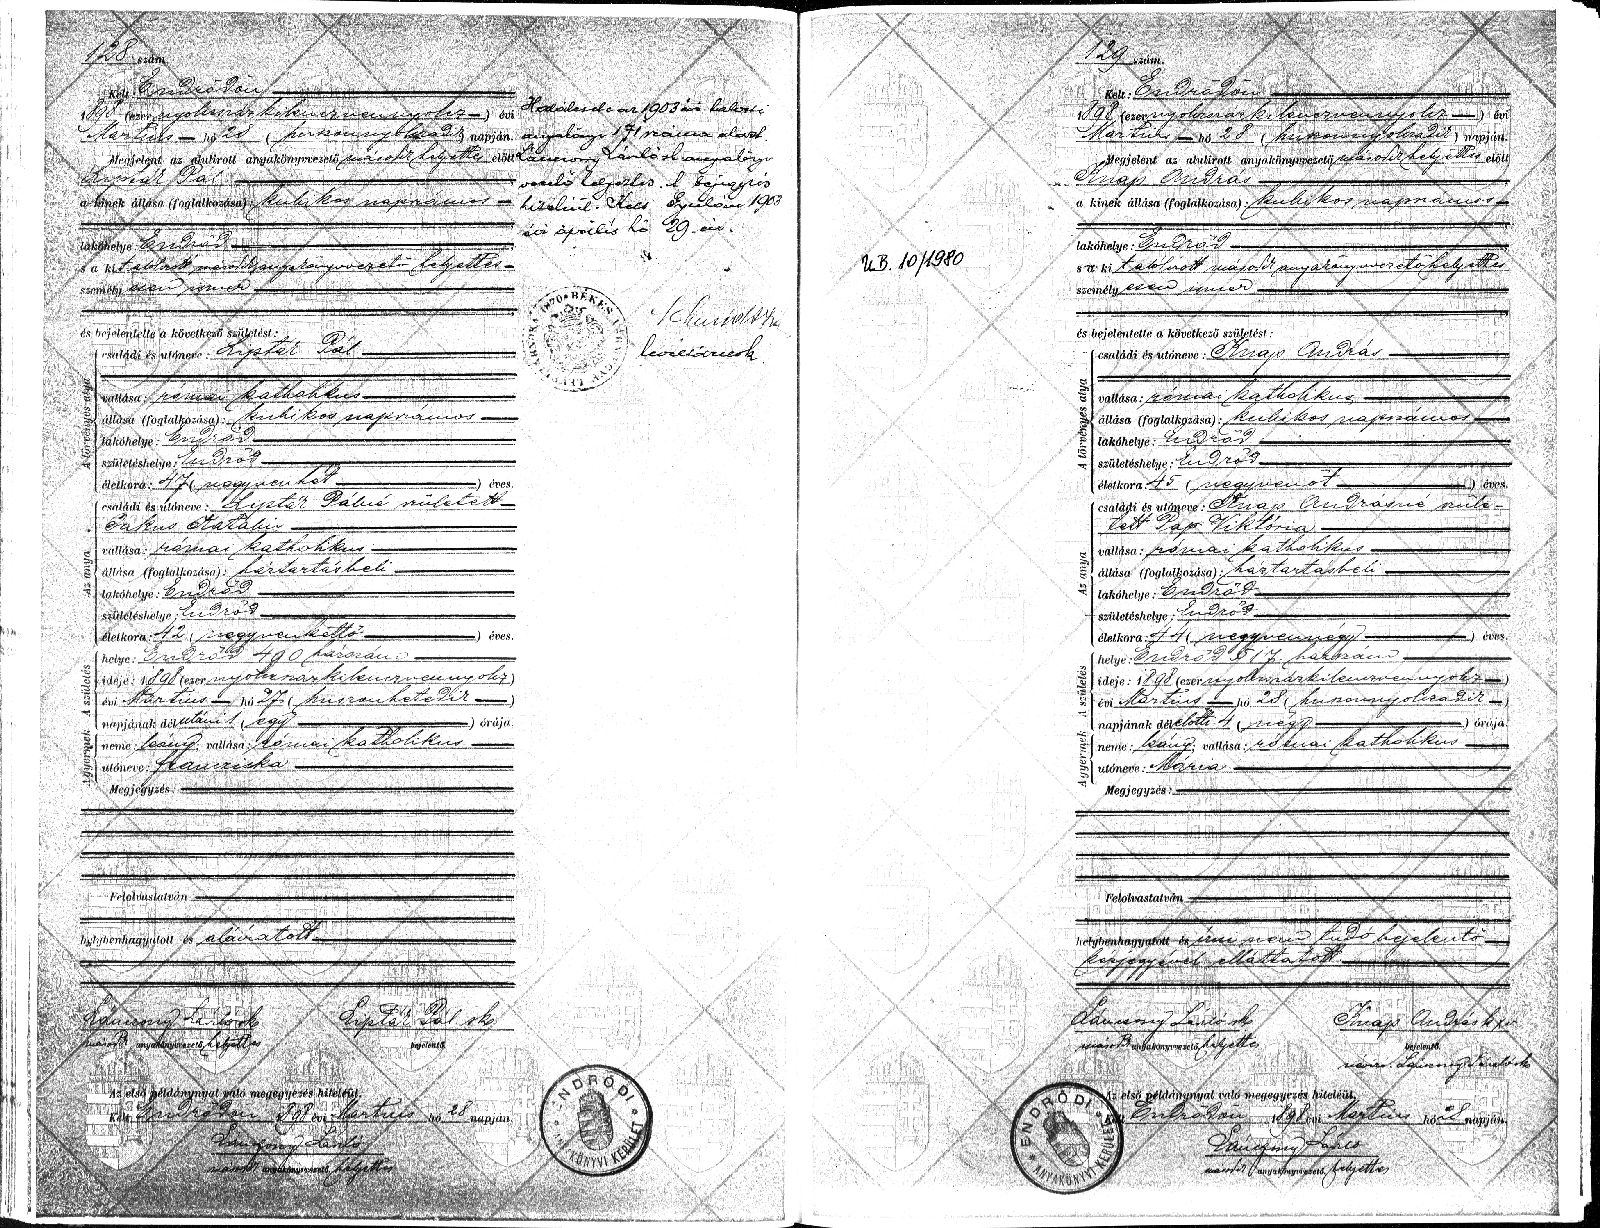 128 szám.
Kelt Endrődön
1898 (ezernyolcszázkilenczvennyolcz) évi
Martius hó 28 (huszonnyolczadik) napján.
Megjelent az alulirott anyakönyvvezető másodhelyettes előtt
Liptár Pál
a kinek állása (foglalkozása): kubikos napszámos
lakóhelye: Endrőd
s a kit alólirott másodanyakönyvvezető helyettes
személyesen ismer
és bejelentette a következő születést:
A törvényes atya
családi és utóneve: Liptár Pál
vallása: római katholikus
állása (foglalkozása): kubikos napszámos
lakóhelye: Endrőd
születéshelye: Endrőd
életkora: 47 (negyvenhét) éves.
Az anya
családi és utóneve: Liptár Pálné született
Katalin
vallása: római katholikus
állása (foglalkozása): háztartásbeli
lakóhelye: Endrőd
születéshelye: Endrőd
életkora: 42 (negyvenkettő) éves.
A gyermek A születés
helye: Endrőd 490 házszám
ideje: 1898 (ezernyolczszázkilenczvennyolcz)
évi Martius hó 27 (huszonhetedik)
napjának délutáni 1 (egy) órája.
neme: leány; vallása: római katholikus
utóneve: Francziska
Megjegyzés:
Felolvastatván
helybenhagyatott és aláiratott
Lánczony László sk Liptár Pál sk
másod anyakönyvvezető helyettes bejelentő.
Az első példánynyal való megegyezés hiteléül.
Kelt Endrődön 1898 évi Martius hó 28 napján.
Lánczony László
másod anyakönyvvezető helyettes
ENDRŐDI ANYAKÖNYVI KERÜLET
Halálesete az 1903 évi halotti
anyakönyv 171 száma alatt
Lánczony László anyakönyv
vezető teljesítés. A bejegyzés
hiteléül. Kelt Gyulán 1903
évi április hó 29-én.
levéltárnok
129 szám.
Kelt: Endrődön
1898 (ezernyolczszázkilenczvennyolcz) évi
Martius hó 28 (huszonnyolczadik) napján.
Megjelent az alulirott anyakönyvvezető másodhelyettes előtt
Knap András
a kinek állása (foglalkozása): kubikos napszámos
lakóhelye: Endrőd
s a kit alólirott másod anyakönyvvezetőhelyettes
személyesen ismer
és bejelentette a következő születést:
A törvényes atya
családi és utóneve: Knap András
vallása: római katholikus
állása (foglalkozása): kubikos napszámos
lakóhelye: Endrőd
születéshelye: Endrőd
életkora: 45 (negyvenöt) éves.
Az anya
családi és utóneve: Knap Andrásné szüle-
tett Pap Viktória
vallása: római katholikus
állása (foglalkozása): háztartásbeli
lakóhelye: Endrőd
születéshelye: Endrőd
életkora: 44 (negyvennégy) éves.
A gyermek A születés
helye: Endrőd 517 házszám
ideje: 1898 (ezernyolczszázkilenczvennyolcz)
évi Martius hó 28 (huszonnyolczadik)
napjának délelőtti 4 (négy) órája
neme: leány; vallása: római katholikus
utóneve: Mária
Megjegyzés:
Felolvastatván
helybenhagyatott és irni nem tudó bejelentő
kézjegyével elláttatott.
Lánczony László sk Knap András
másod anyakönyvvezető helyettes bejelentő.
névír. Lánczony László sk
Az első példánynyal való megegyezés hiteléül.
Kelt Endrődön 1898 évi Martius hó 28 napján.
Lánczony László
másod anyakönyvvezető helyettes
ENDRŐDI ANYAKÖNYVI KERÜLET
U.B. 10/1980